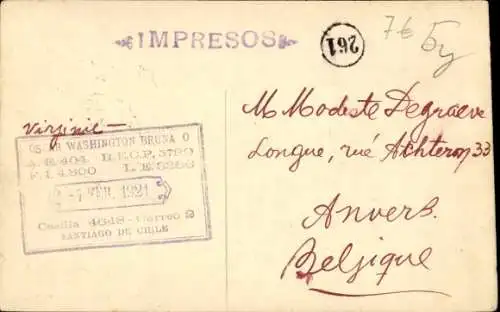 IMPRESOS
261
7€
Virginie
WASHINGTON BRUNA O
A.E. 404. B.E.C.P. 5790
F.I. 4.800 L.E. 3288
FEB. 1921
Casilla 4648 - Correo 2
SANTIAGO DE CHILE
M Modeste Degraeve
Longue, rué Achterom 33
Anvers.
Belgique